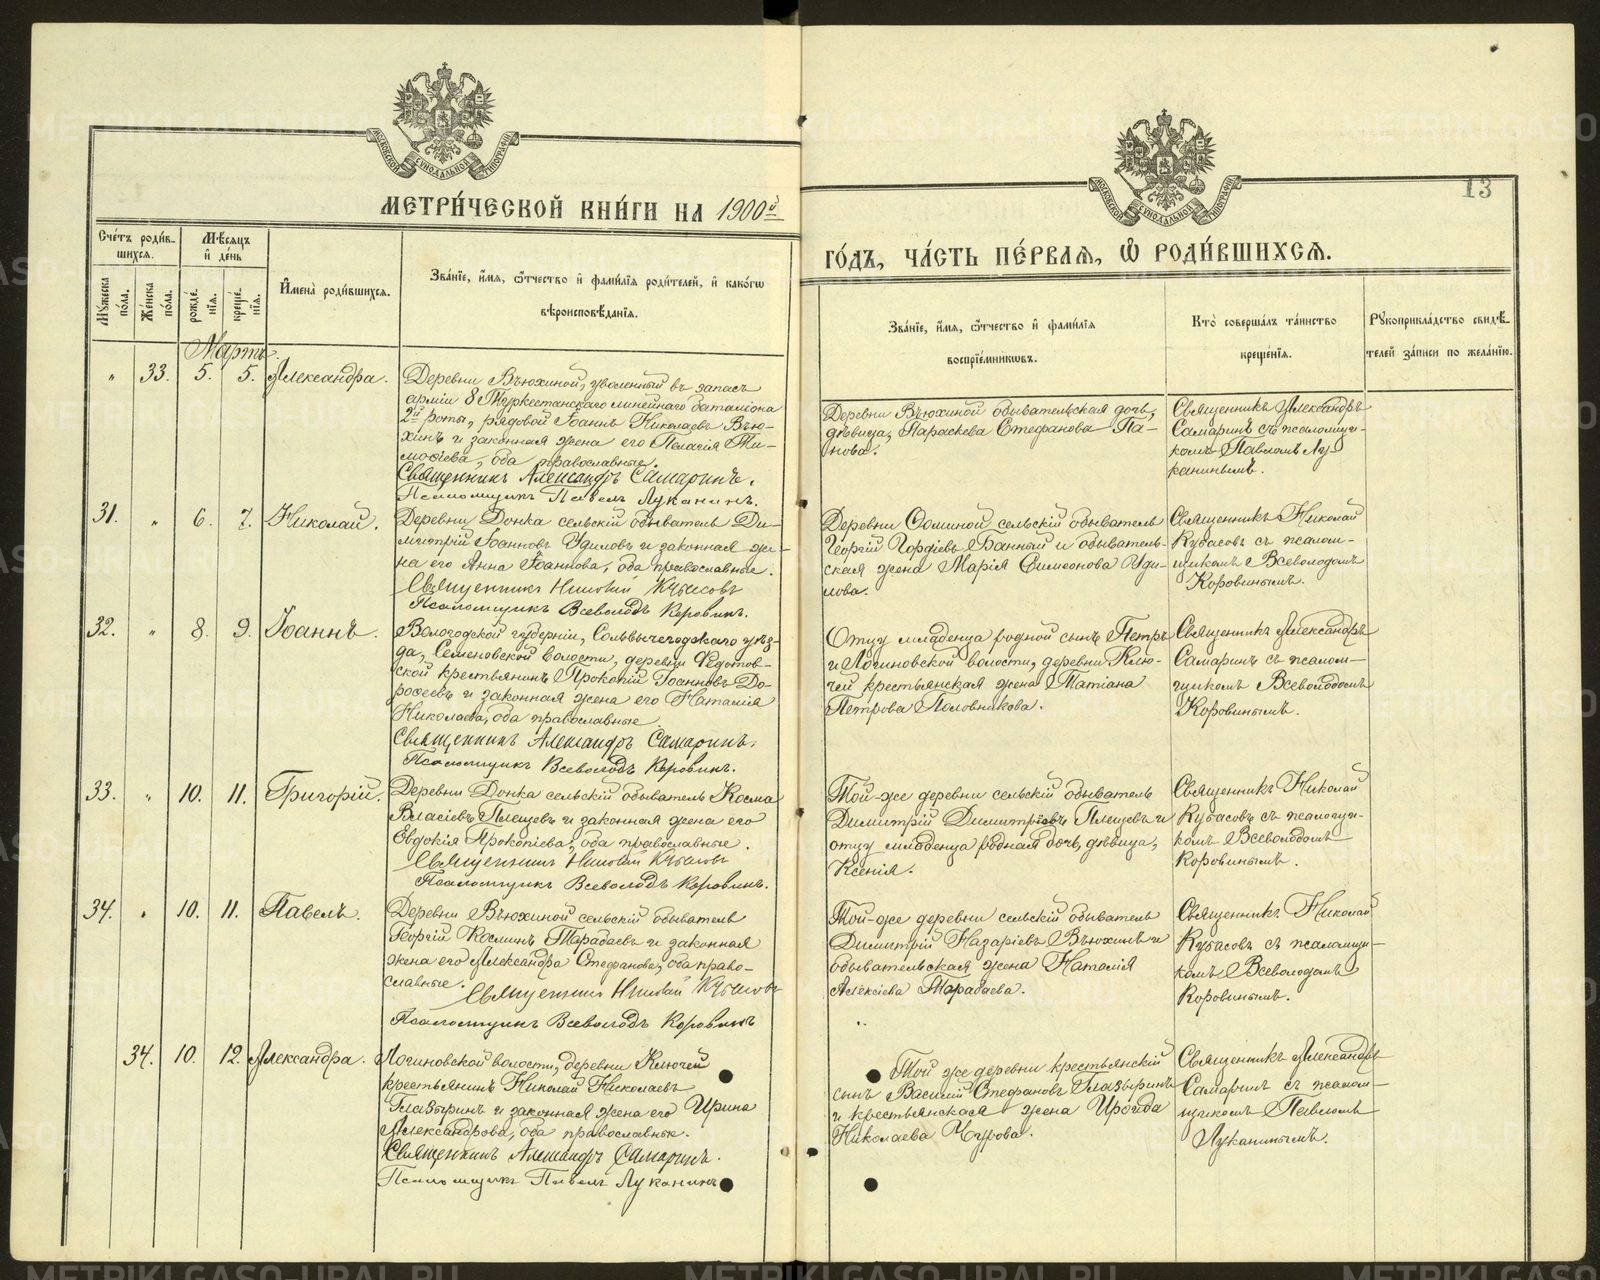 МЕТРИ́ЧЕСКОЙ КНИ́ГИ НА 1900й
ГО́ДЪ, ЧА́СТЬ ПЕ́РВАЯ, Ѡ РОДИ́ВШИХСЯ.
13
МОСКОВСКОЙ СѴНОДАЛЬНОЙ ТИПОГРАФІИ
МОСКОВСКОЙ СѴНОДАЛЬНОЙ ТИПОГРАФІИ
Сче́тъ роди́вшихся.
Мꙋ́жеска по́ла.
Же́нска по́ла.
Мѣ́сяцъ и҆ де́нь
рожде́нїя.
креще́нїя.
И҆мена̀ роди́вшихся.
Зва́нїе, и҆́мя, ѻ҆́тчество и҆ фами́лїя роди́телей, и҆ како́гѡ
вѣроисповѣ́данїя.
Зва́нїе, и҆́мя, ѻ҆́тчество и҆ фами́лїя
воспрїе́мникѡвъ.
Кто̀ соверша́лъ та́инство
креще́нїя.
Рꙋкоприкла́дство свидѣ́-
телей за́писи по жела́нїю.
Мартъ.
" 33. 5. 5. Александра.
Деревни Вьюхиной, уволенный въ запасъ
арміи 8 Туркестанскаго линейнаго баталіона
2й роты, рядовой Іоаннъ Николаевъ Вью-
хинъ и законная жена его Пелагія Ти-
моѳіева, оба православные.
Священникъ Александръ Самаринъ.
Псаломщикъ Павелъ Луканинъ.
Деревни Вьюхиной обывательская дочь,
дѣвица, Параскева Стефанова Па-
нова.
Священникъ Александръ
Самаринъ съ псаломщи-
комъ Павломъ Лу-
канинымъ.
31. " 6. 7. Николай.
Деревни Донка сельскій обыватель Ди-
митрій Іоанновъ Удиловъ и законная же-
на его Анна Іоаннова, оба православные.
Священникъ Николай Кубасовъ
Псаломщикъ Всеволодъ Коровинъ.
Деревни сельскій обыватель
Георгій Гордіевъ Банный и обыватель-
ская жена Марія Симеонова Уди-
лова.
Священникъ Николай
Кубасовъ съ псалом-
щикомъ Всеволодомъ
Коровинымъ.
32. " 8. 9. Іоаннъ.
Вологодской губерніи, Сольвычегодскаго уѣз-
да, Семеновской волости, деревни Федотов-
ской крестьянинъ Прокопій Іоанновъ До-
роѳеевъ и законная жена его Наталія
Николаева, оба православные.
Священникъ Александръ Самаринъ.
Псаломщикъ Всеволодъ Коровинъ.
Отцу младенца родной сынъ Петръ
и Логиновской волости, деревни Клю-
чей крестьянская жена Татіана
Петрова Половникова.
Священникъ Александръ
Самаринъ съ псалом-
щикомъ Всеволодомъ
Коровинымъ.
33. " 10. 11. Григорій.
Деревни Донка сельскій обыватель Косма
Власіевъ Плещевъ и законная жена его
Евдокія Прокопіева, оба православные.
Священникъ Николай Кубасовъ
Псаломщикъ Всеволодъ Коровинъ.
Той-же деревни сельскій обыватель
Димитрій Димитріевъ Плещевъ и
отцу младенца родная дочь, дѣвица,
Ксенія.
Священникъ Николай
Кубасовъ съ псаломщи-
комъ Всеволодомъ
Коровинымъ.
34. " 10. 11. Павелъ.
Деревни Вьюхиной сельскій обыватель
Георгій Косминъ Тарабаевъ и законная
жена его Александра Стефанова, оба право-
славные.
Священникъ Николай Кубасовъ
Псаломщикъ Всеволодъ Коровинъ
Той-же деревни сельскій обыватель
Димитрій Назаріевъ Вьюхинъ и
обывательская жена Наталія
Алексіева Тарабаева.
Священникъ Николай
Кубасовъ съ псаломщи-
комъ Всеволодомъ
Коровинымъ.
34. 10. 12. Александра.
Логиновской волости, деревни Ключей
крестьянинъ Николай Николаевъ
Глазыринъ и законная жена его Ирина
Александрова, оба православные.
Священникъ Александръ Самаринъ.
Псаломщикъ Павелъ Луканинъ
Той же деревни крестьянскій
сынъ Василій Стефановъ Глазыринъ
и крестьянская жена Ироида
Николаева Чурова.
Священникъ Александръ
Самаринъ съ псалом-
щикомъ Павломъ
Луканинымъ.
METRIKI.GASO-URAL.RU